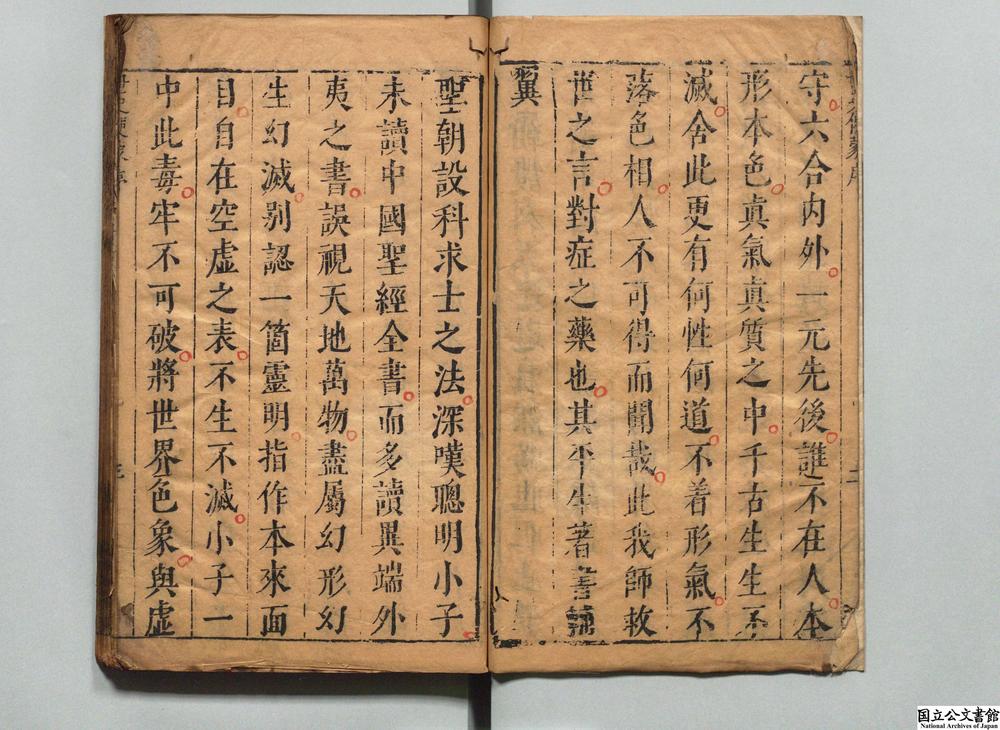 守六合内外一元先後誰不在人本
形本色真氣真質之中千古生生不
滅舍此更有何性何道不着形氣不
落色相人不可得而聞哉此我師救
世之言對症之藥也其平生著書輔
翼
聖朝設科求士之法深嘆聰明小子
未讀中國聖經全書而多讀異端外
夷之書誤視天地萬物盡屬幻形幻
生幻滅别認一箇靈明指作本來面
目自在空虚之表不生不滅小子一
中此毒牢不可破將世界色象與虚
国立公文書館
National Archives of Japan